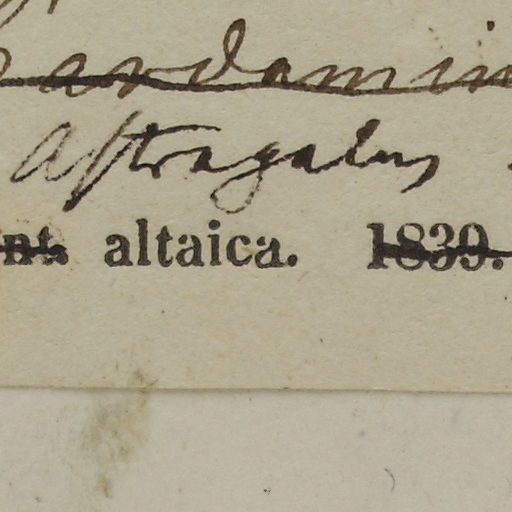 ardamin
Astragalus
nt. altaica. 1839.